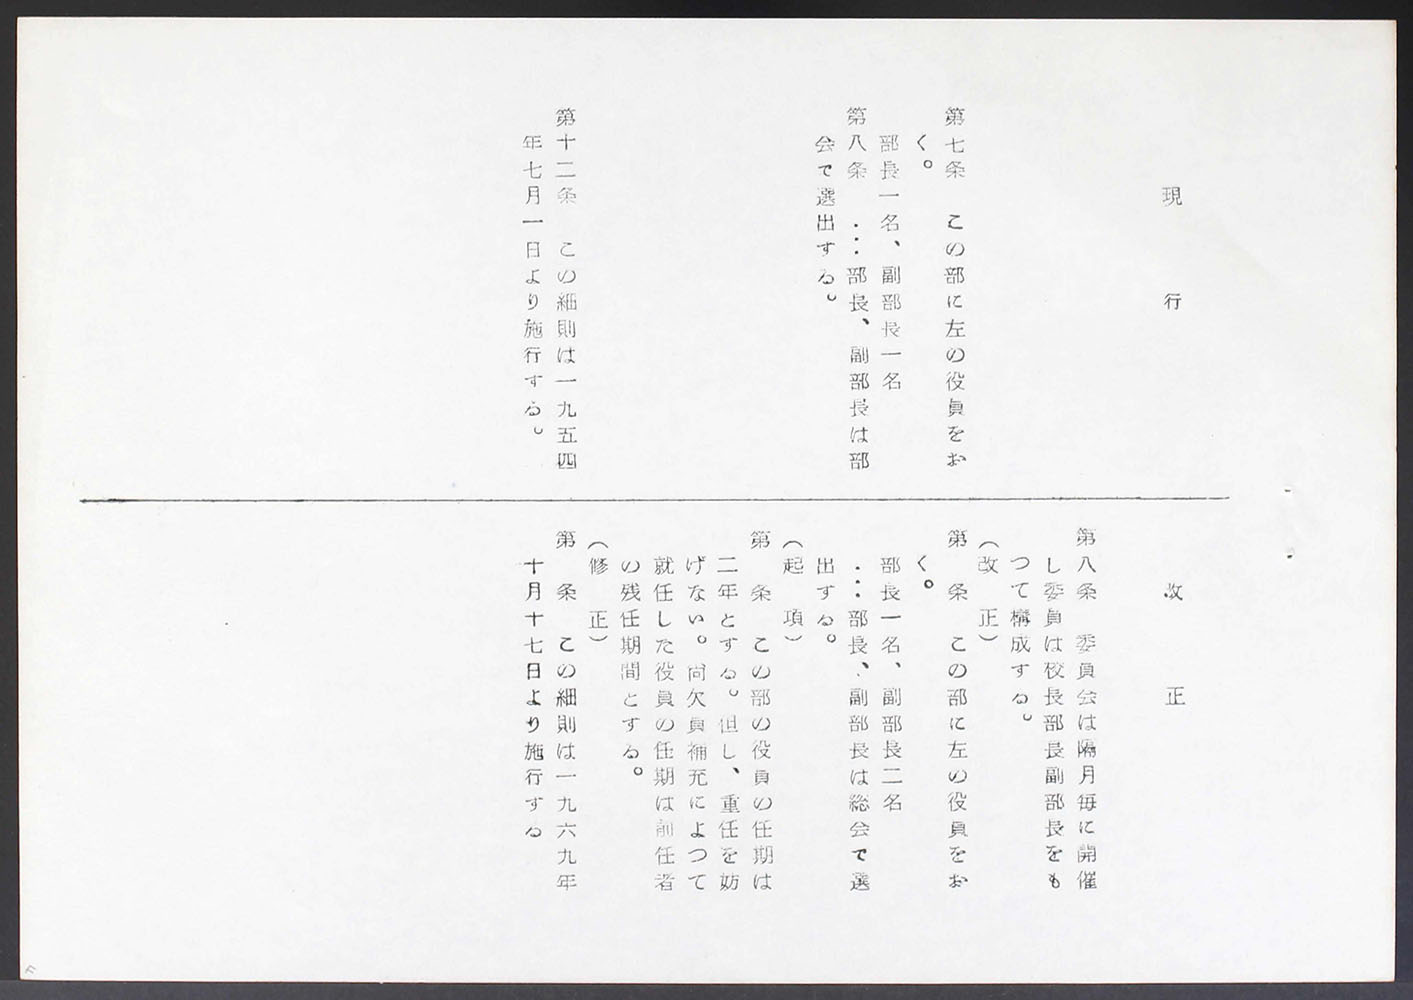 現行
第七条　この部に左の役員をお
く。
部長一名、副部長一名
第八条　・・・部長、副部長は部
会で選出する。
第十二条　この細則は一九五四
年七月一日より施行する。
改正
第八条　委員会は隔月毎に開催
し委員は校長部長副部長をも
つて構成する。
（改　正）
第　条　この部に左の役員をお
く。
部長一名、副部長二名
・・・部長、副部長は総会で選
出する。
（起　項）
第　条　この部の役員の任期は
二年とする。但し、重任を妨
げない。尚欠員補充によつて
就任した役員の任期は前任者
の残任期間とする。
（修　正）
第　条　この細則は一九六九年
十月十七日より施行する